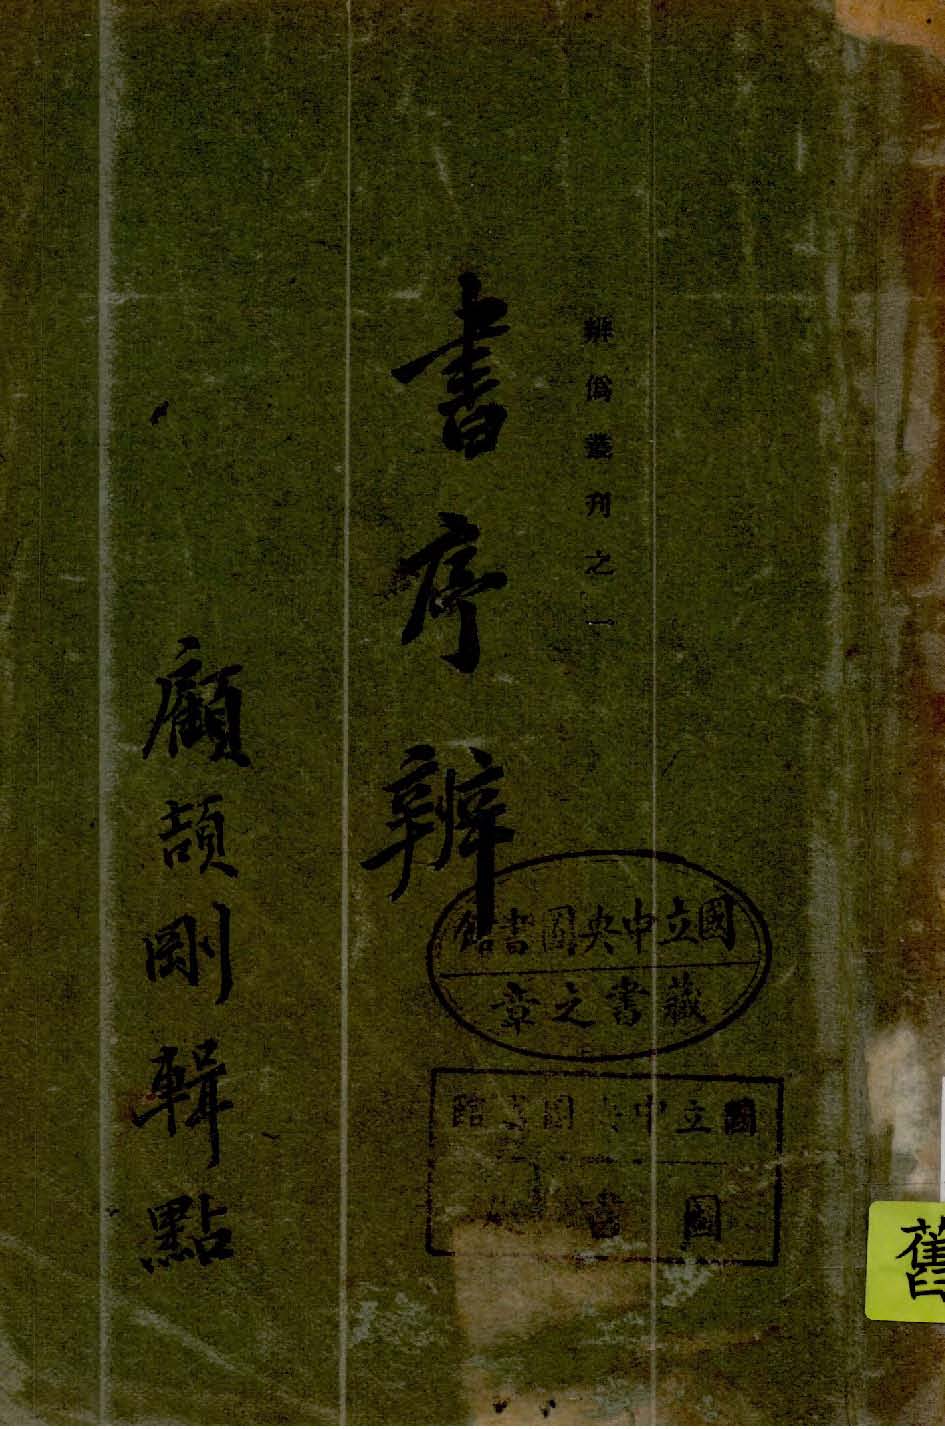 辨僞叢刊之一
書序辨
顧頡剛輯點
國立中央圖書館
藏書之章
國立中央圖書館
圖書
舊